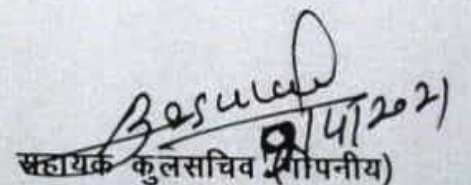 9/4/2021
सहायक कुलसचिव (गोपनीय)